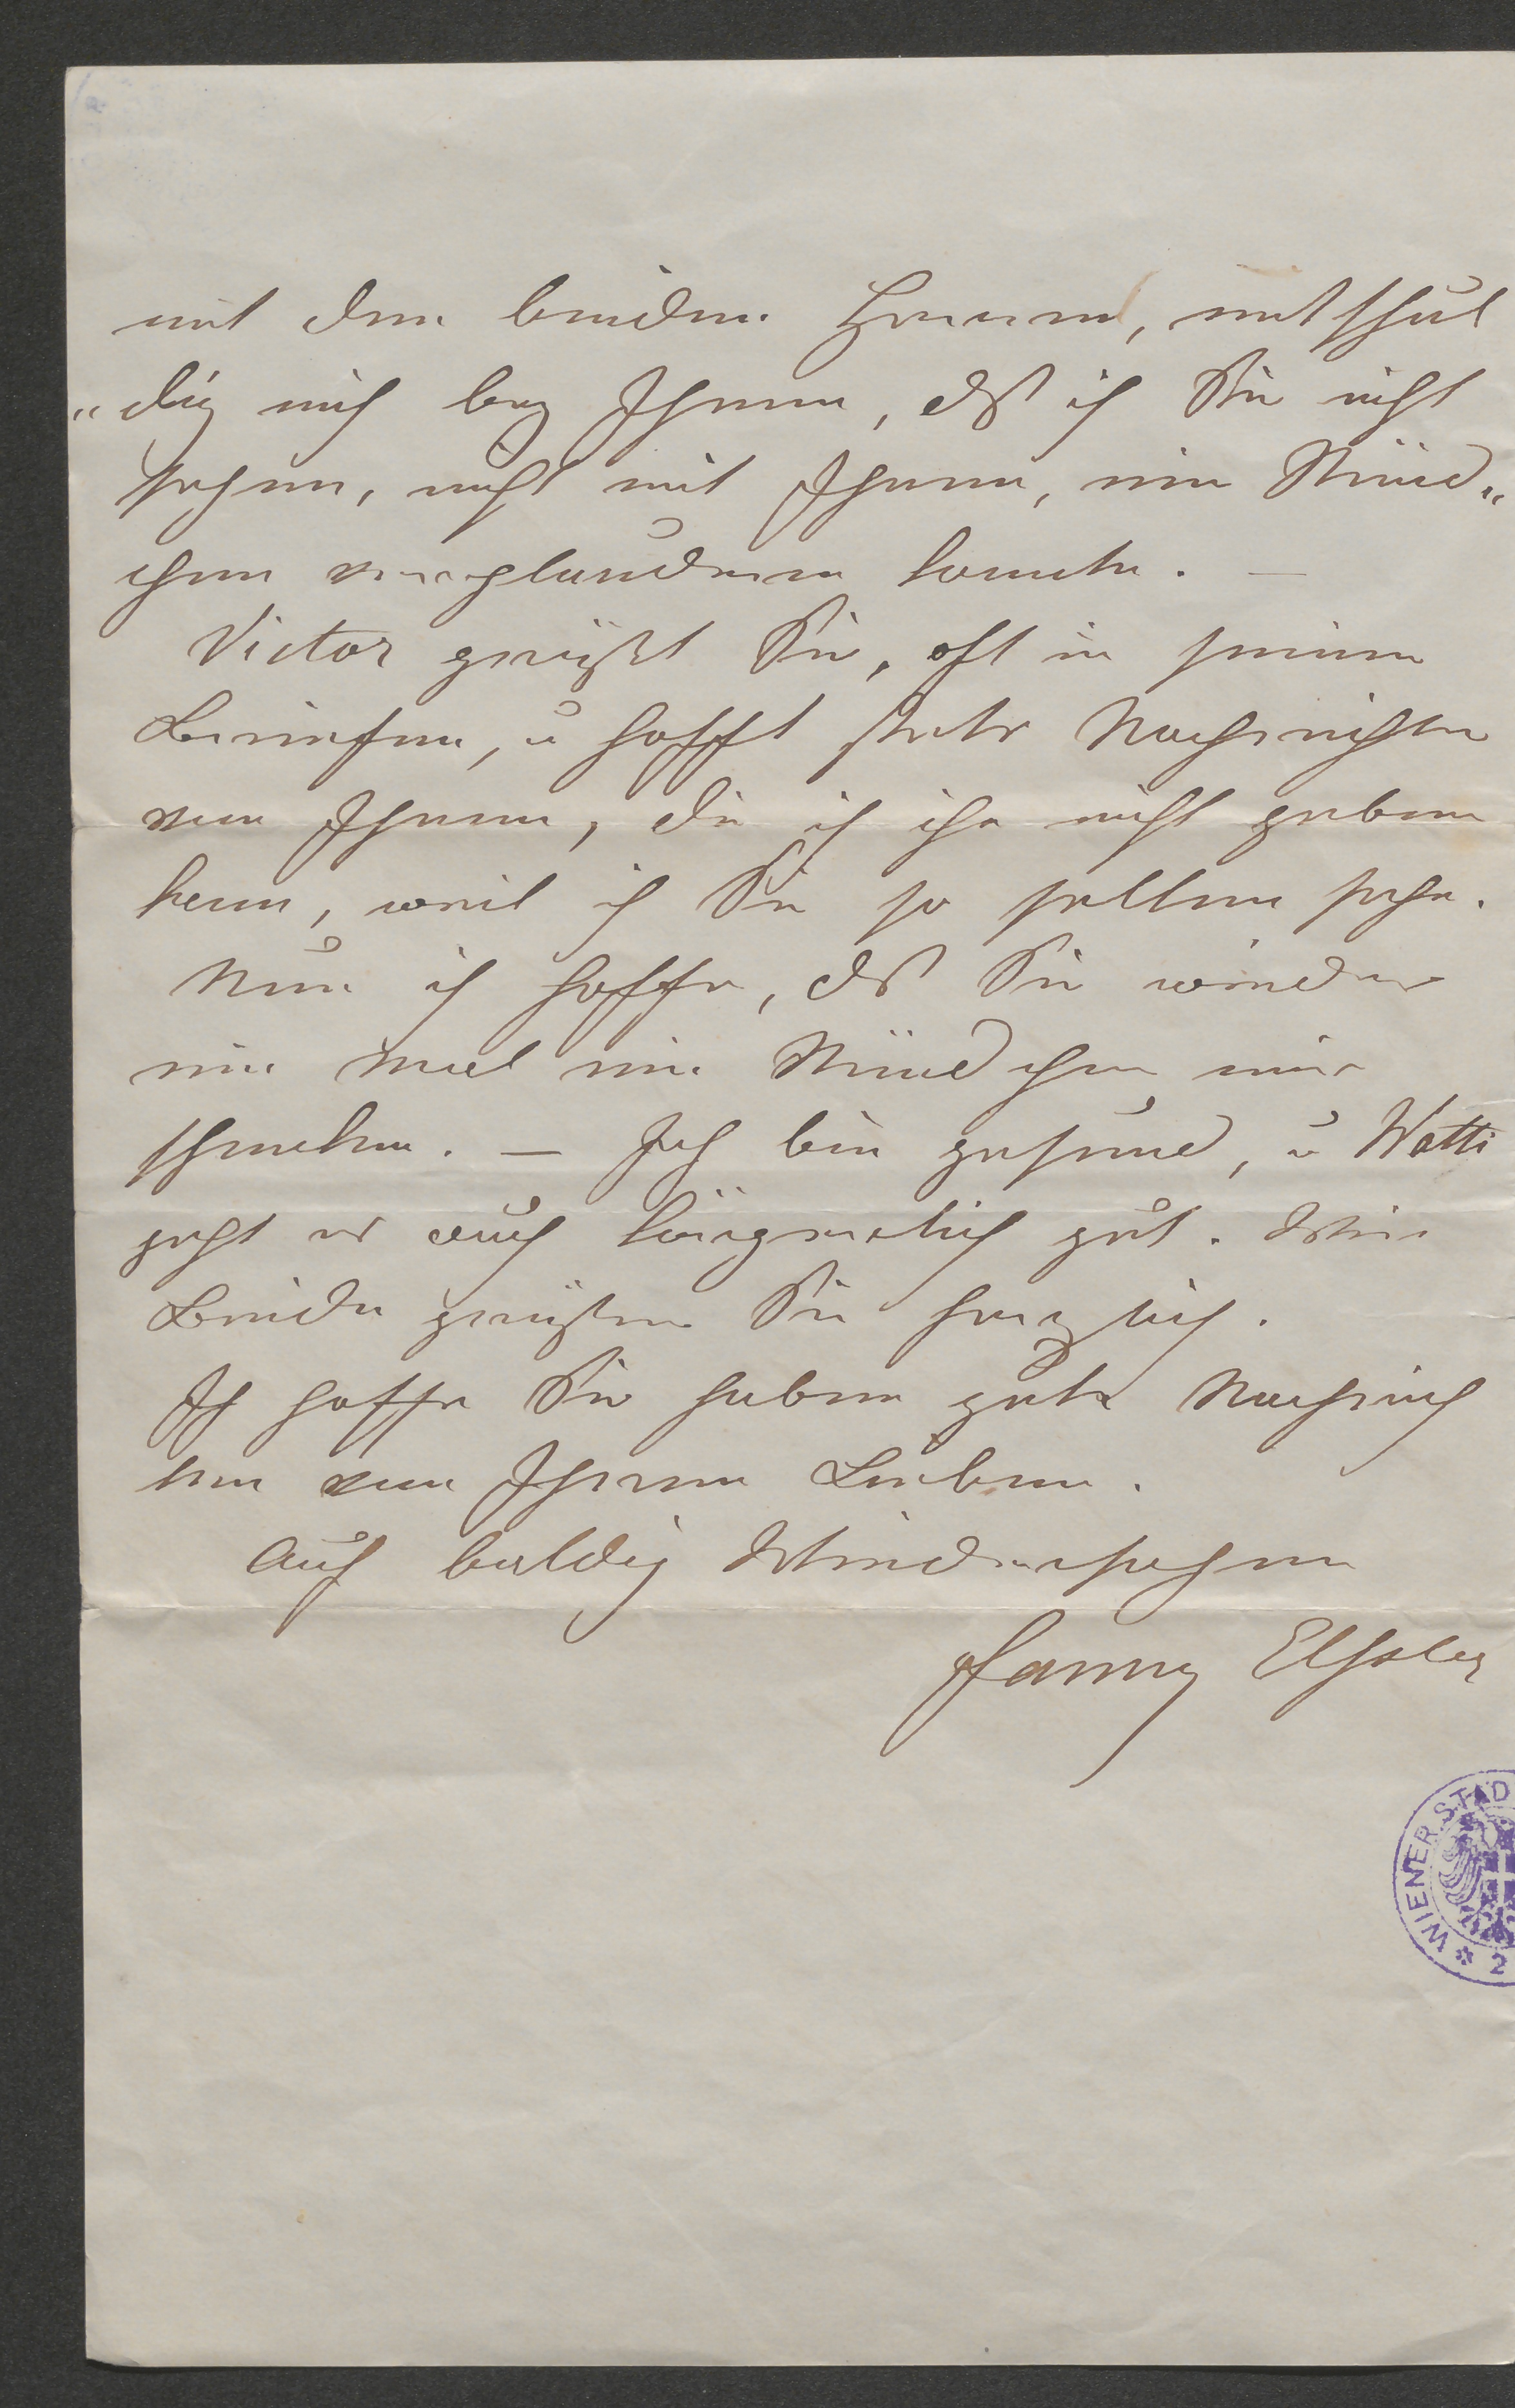 mit den beiden Herren, entschul
"dig mich bey Ihnen, dß ich Sie nicht
sehen, nicht mit Ihnen, ein Stünd"
chen verplaudern konnte. —
Victor grüßt Sie, oft in seinen
Briefen, u hofft stets Nachrichten
von Ihnen, die ich ihr nicht geben
kann, weil ich Sie so selten sehe.
Nun ich hoffe, dß Sie wieder
ein mal ein Stündchen mir
schenken. — Ich bin gesund, u Watti
geht es auch körperlich gut. Wir
Beide grüßen Sie herzlich.
Ich hoffe Sie haben gute Nachrich
ten von Ihren Lieben.
Auf baldig Wiedersehen
Fanny Elßler
WIENER STAD
* 2